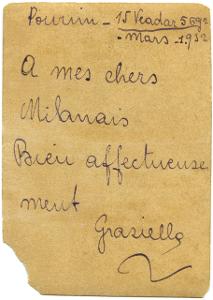 Pourim - 15 Veadar 5692
- Mars - 1932
A mes chers
Milanais
Bien affectueuse
ment
Graziella